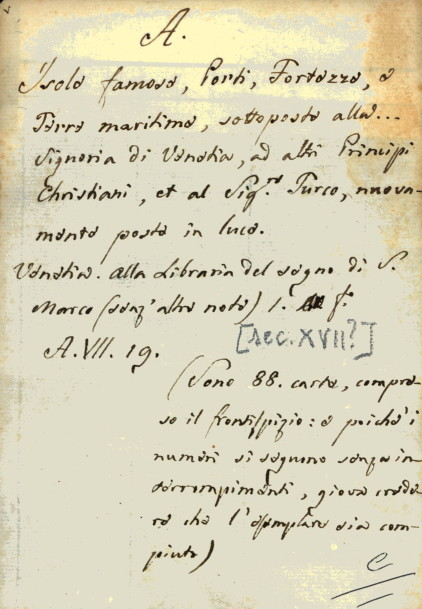 A.
Isole famose, Porti, Fortezze, e
Terre maritime, sottoposte alla...
Signoria di Venetia, ad altri Principi
Christiani, et al Sig.re Turco, nuova-
mente poste in luce.
Venetia. alla Libraria del segno di S.
Marco (senz'altre note) 1. f.o
[sec. XVII?]
A. VII. 19.
(Sono 88. carte, compre-
so il frontispizio: e poichè i
numeri si seguono senza in-
terrompimenti, giova crede-
re che l'esemplare sia com-
piuto)
C